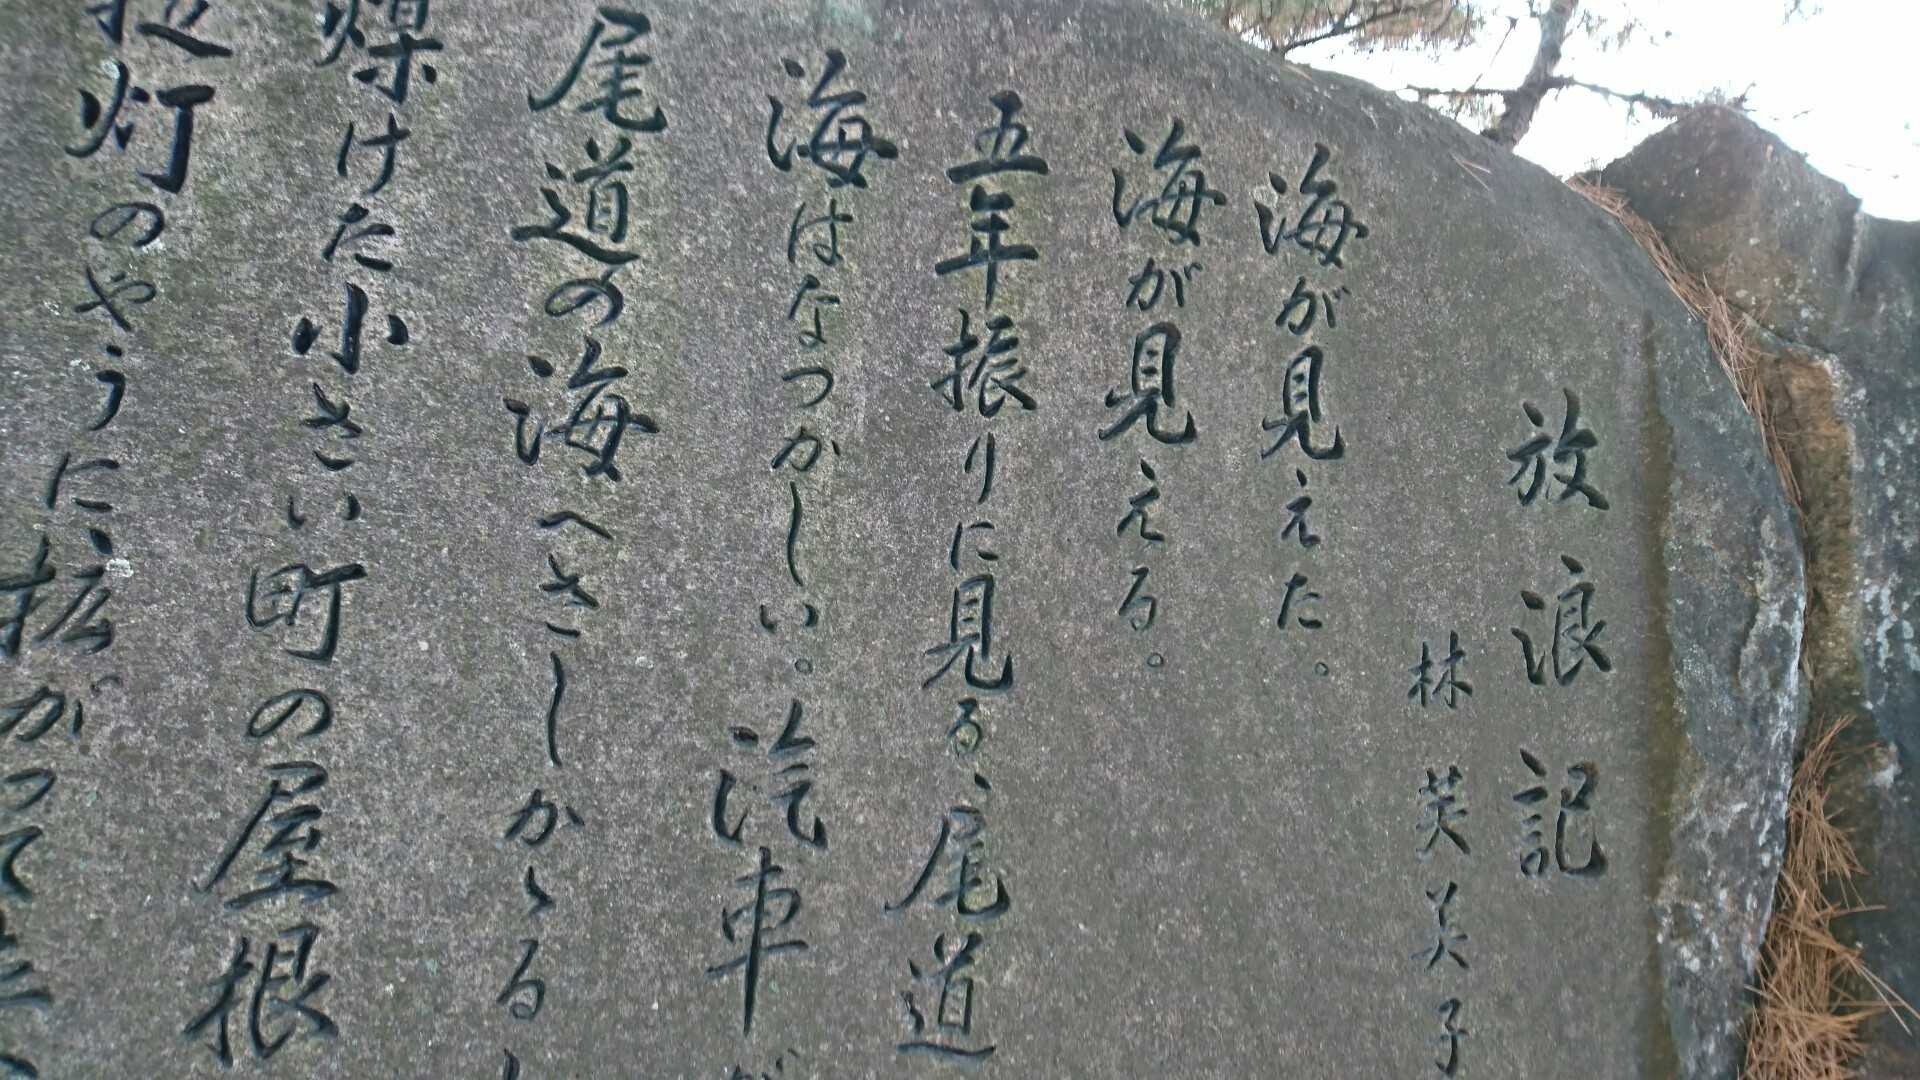 放浪記
林芙美子
海が見えた。
海が見える。
五年振りに見る、尾道
海はなつかしい。汽車が
尾道の海へさしかゝる
煤けた小さい町の屋根
提灯のやうに、拡がって